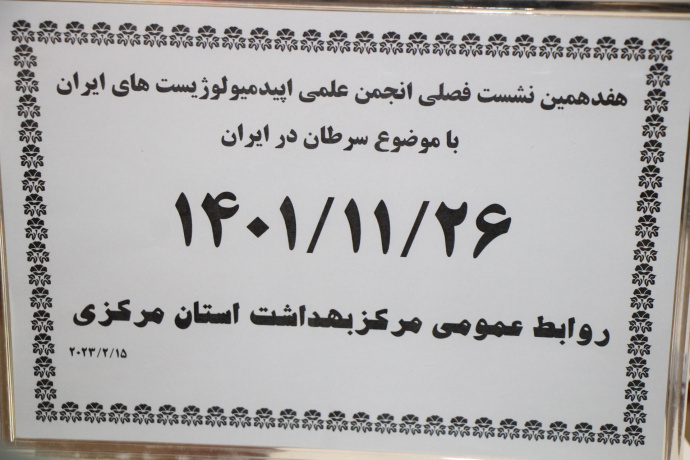 هفدهمین نشست فصلی انجمن علمی اپیدمیولوژیست های ایران
با موضوع سرطان در ایران
۱۴۰۱/۱۱/۲۶
روابط عمومی مرکزبهداشت استان مرکزی
۲۰۲۳/۲/۱۵